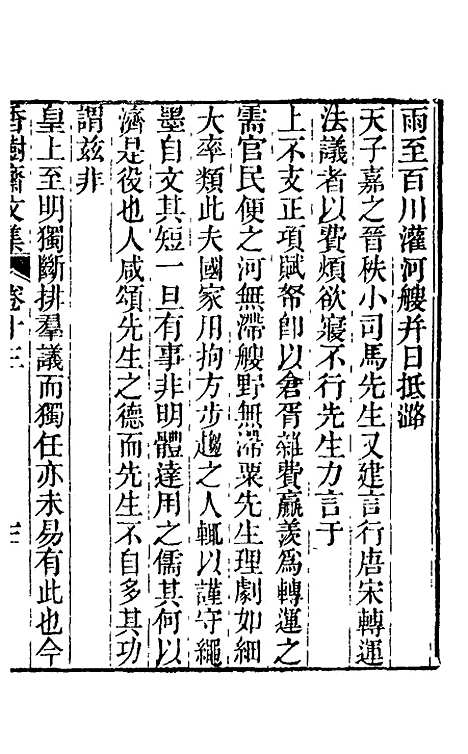 雨至百川灌河艘并日抵潞
天子嘉之晉秩小司馬先生又建言行唐宋轉運
法議者以費煩欲寢不行先生力言于
上不支正項賦帑卽以倉胥雜費羸羨爲轉運之
需官民便之河無滯艘野無滯粟先生理劇如細
大率類此夫國家用拘方步趨之人輒以謹守繩
墨自文其短一旦有事非明體達用之儒其何以
濟是役也人咸頌先生之德而先生不自多其功
謂兹非
皇上至明獨斷排羣議而獨任亦未易有此也今
香樹齋文集 卷十三 三